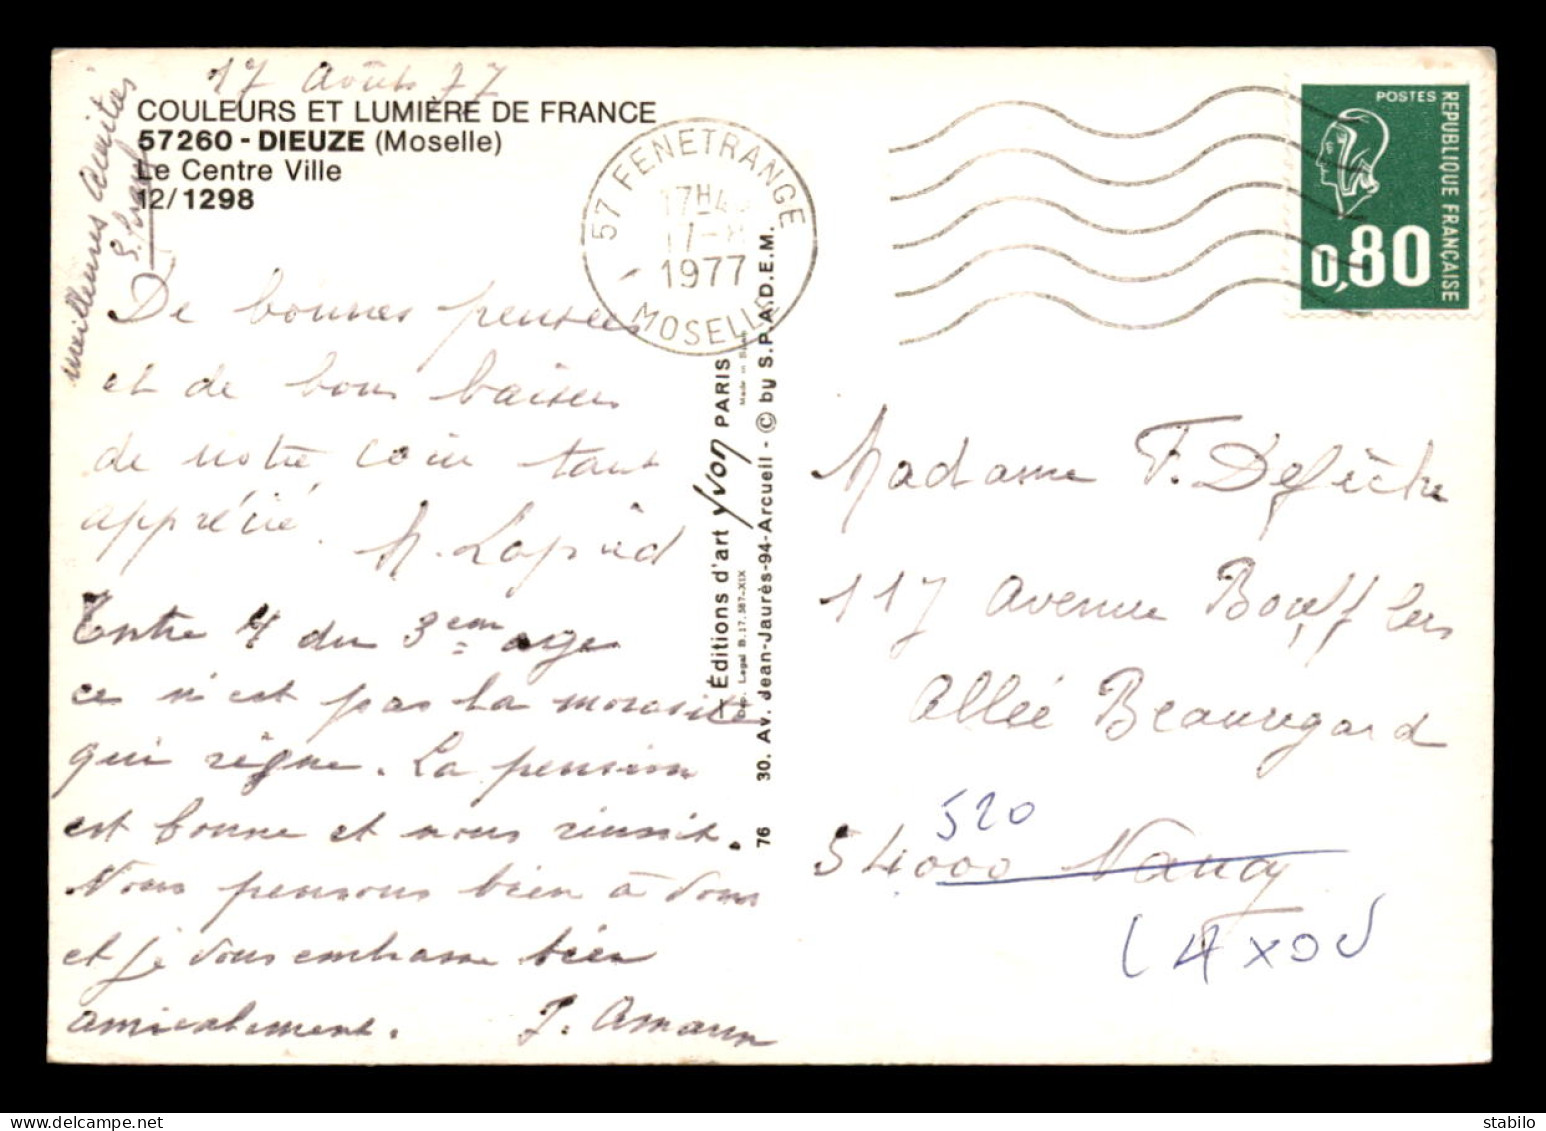 17 Août 77
COULEURS ET LUMIÈRE DE FRANCE
57260 - DIEUZE (Moselle)
Le Centre Ville
12/1298
meilleures amitiés
De bonnes pensées
et de bons baisers
de notre coin tant
apprécié. M. Lapied
Entre 4 du 3em age
ce n'est pas la morosité
qui règne. La pension
est bonne et nous réussit.
Nous pensons bien à vous
et je vous embrasse bien
amicalement. J. Amann
57 FENETRANGE
17H4
1977
MOSELLE
Éditions d'art Yvon PARIS
Dép. Légal B. 17.587-XIX
Made in
30. Av. Jean-Jaurès-94-Arcueil - © by S.P.A.D.E.M.
76
POSTES
REPUBLIQUE FRANÇAISE
0,80
Madame F. Defêchre
117 Avenue Boufflers
Allée Beauregard
520
54000 Nancy
LAXOU